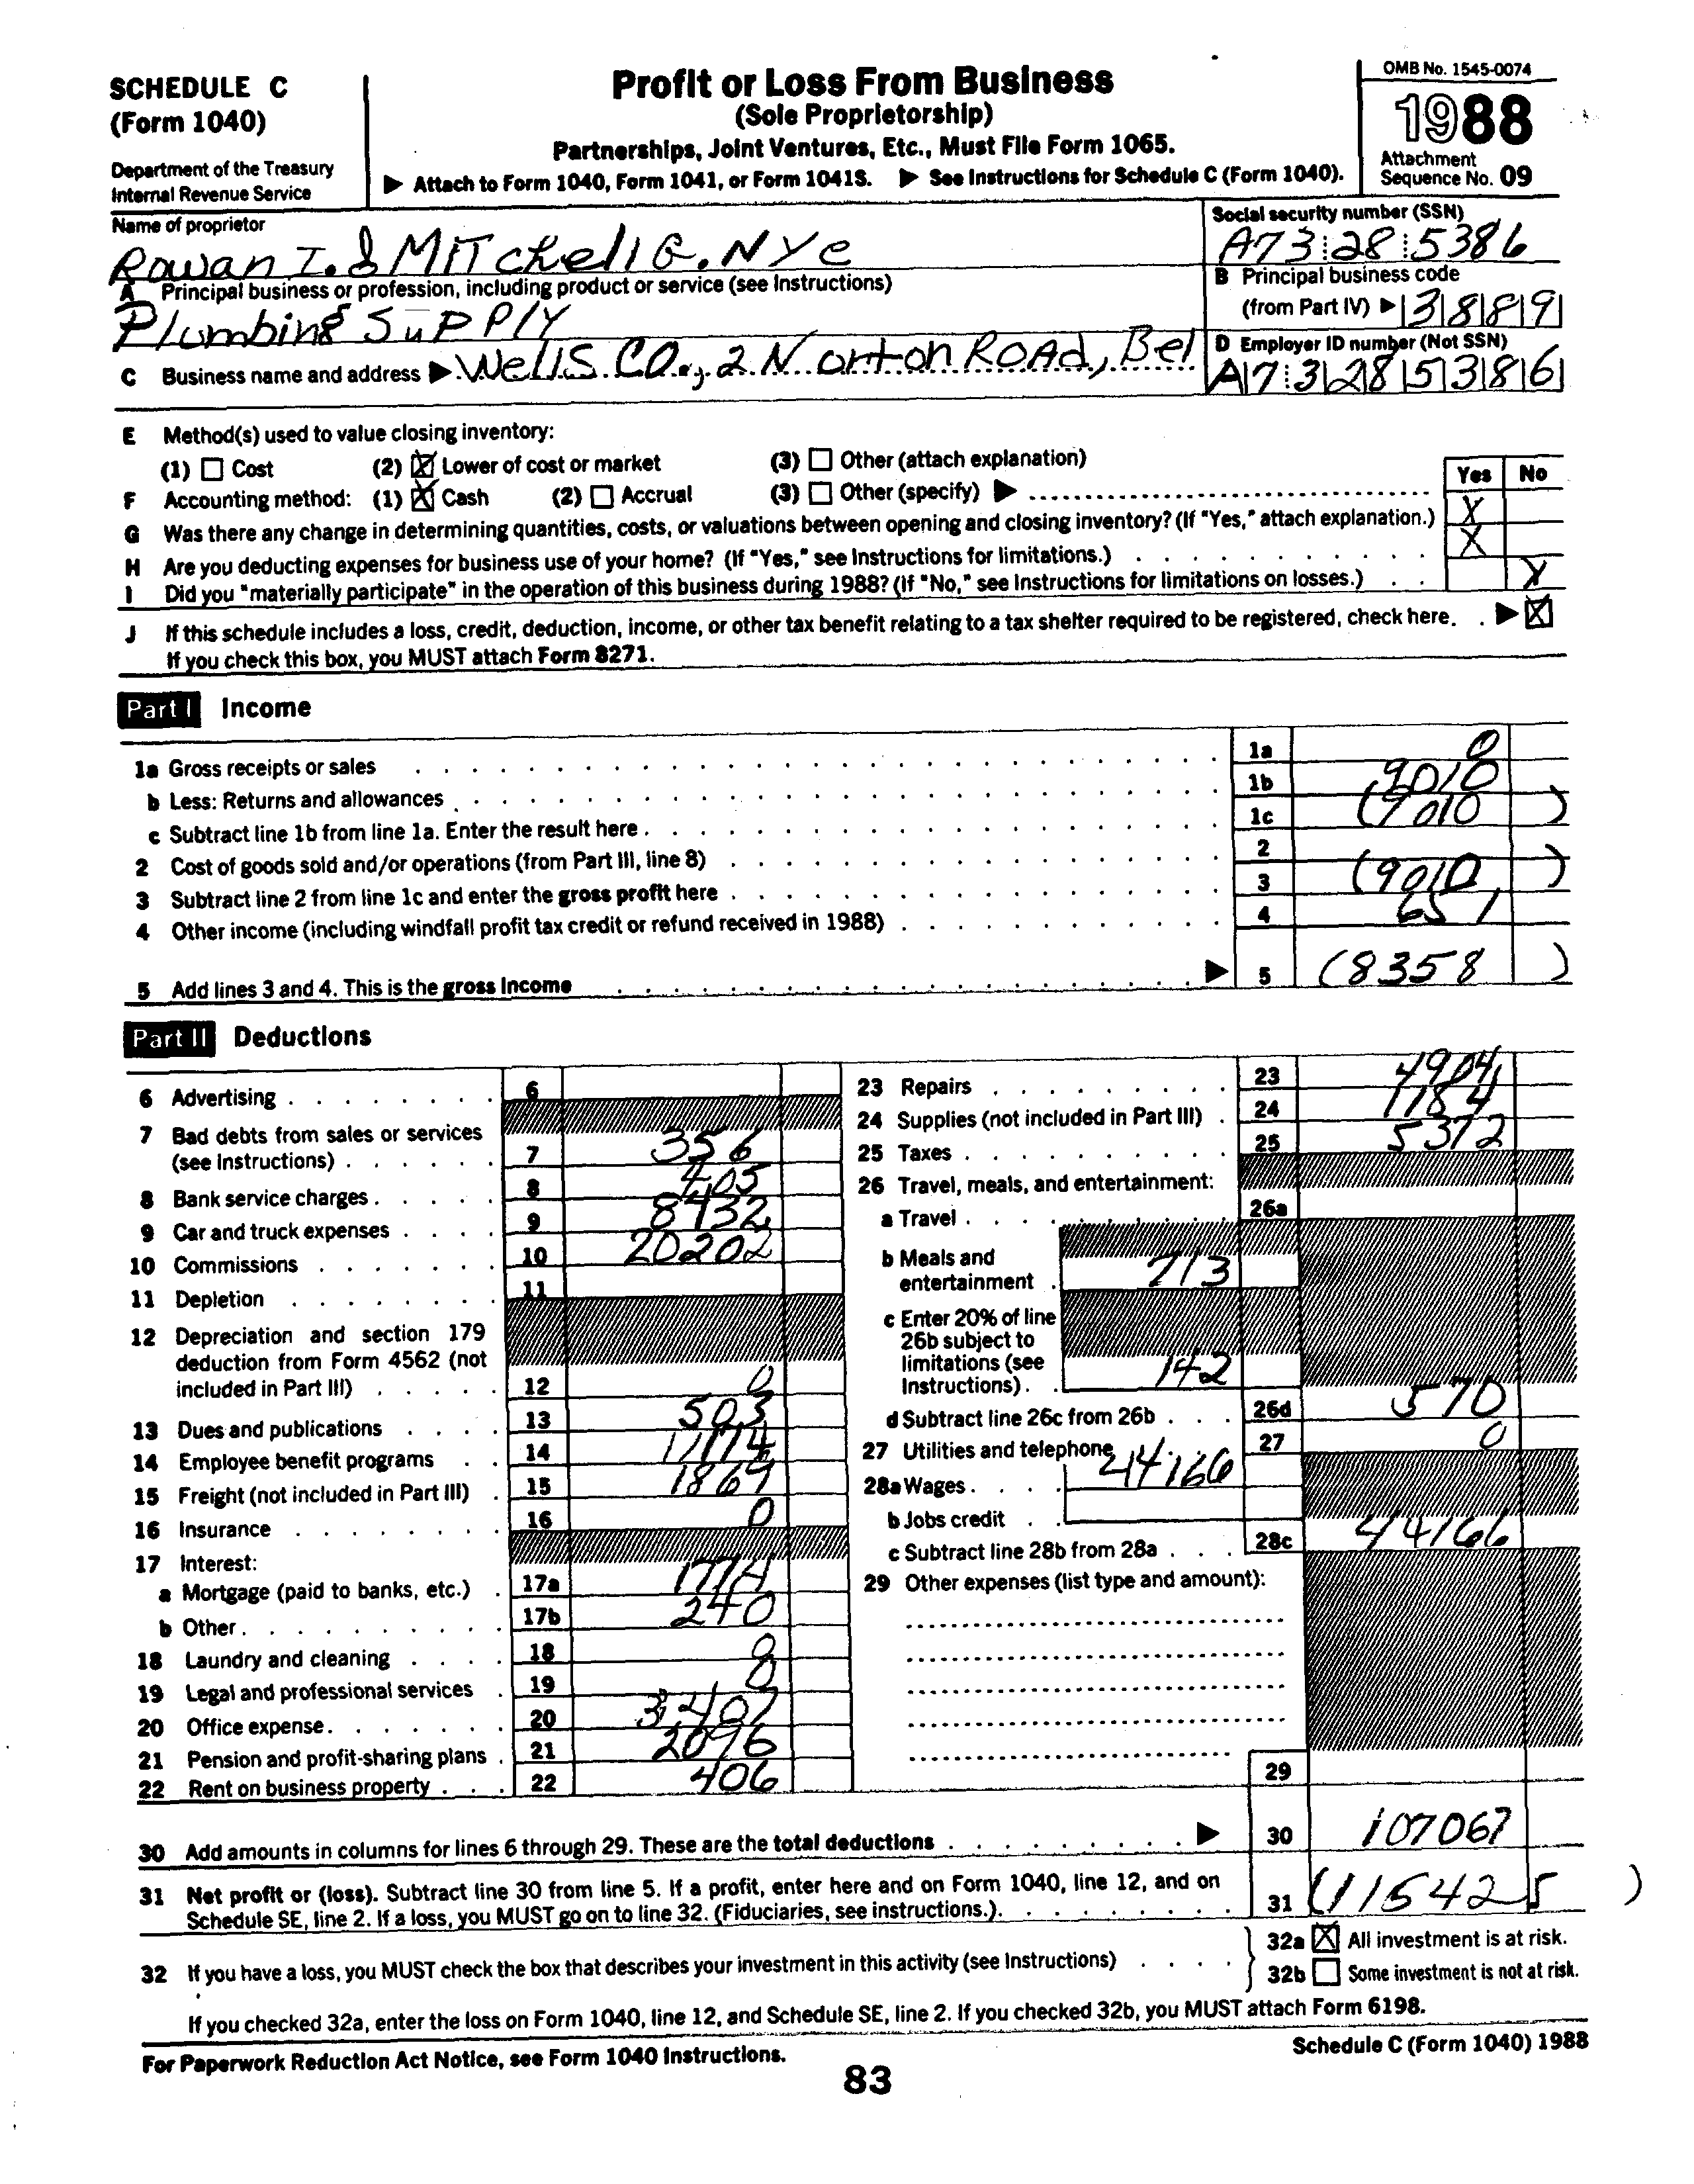 SCHEDULE C
(Form 1040)
Department of the Treasury
Internal Revenue Service
Profit or Loss From Business
(Sole Proprietorship)
Partnerships, Joint Ventures, Etc., Must File Form 1065.
▶ Attach to Form 1040, Form 1041, or Form 1041S. ▶ See Instructions for Schedule C (Form 1040).
OMB No. 1545-0074
1988
Attachment
Sequence No. 09
Name of proprietor
Rowan I. & MITchell G. NYe
Social security number (SSN)
A73 28 5386
A Principal business or profession, including product or service (see Instructions)
Plumbing SuPPLY
B Principal business code
(from Part IV) ▶ 3889
C Business name and address ▶ Wells CO., 2 Norton ROAd, Bel
D Employer ID number (Not SSN)
A73285386
E Method(s) used to value closing inventory:
(1) ☐ Cost (2) ☒ Lower of cost or market (3) ☐ Other (attach explanation)
Yes No
F Accounting method: (1) ☒ Cash (2) ☐ Accrual (3) ☐ Other (specify) ▶
G Was there any change in determining quantities, costs, or valuations between opening and closing inventory? (If "Yes," attach explanation.) X
H Are you deducting expenses for business use of your home? (If "Yes," see Instructions for limitations.) X
I Did you "materially participate" in the operation of this business during 1988? (If "No," see Instructions for limitations on losses.) X
J If this schedule includes a loss, credit, deduction, income, or other tax benefit relating to a tax shelter required to be registered, check here. ▶ ☒
If you check this box, you MUST attach Form 8271.
Part I Income
1a Gross receipts or sales 1a 0
b Less: Returns and allowances 1b 9010
c Subtract line 1b from line 1a. Enter the result here 1c (9010)
2 Cost of goods sold and/or operations (from Part III, line 8) 2
3 Subtract line 2 from line 1c and enter the gross profit here 3 (9010)
4 Other income (including windfall profit tax credit or refund received in 1988) 4 651
5 Add lines 3 and 4. This is the gross income ▶ 5 (8358)
Part II Deductions
6 Advertising 6
7 Bad debts from sales or services
(see Instructions) 7 356
8 Bank service charges 8 405
9 Car and truck expenses 9 8432
10 Commissions 10 20202
11 Depletion 11
12 Depreciation and section 179
deduction from Form 4562 (not
included in Part III) 12 0
13 Dues and publications 13 503
14 Employee benefit programs 14
15 Freight (not included in Part III) 15 1869
16 Insurance 16 0
17 Interest:
a Mortgage (paid to banks, etc.) 17a
b Other 17b 240
18 Laundry and cleaning 18
19 Legal and professional services 19 0
20 Office expense 20 3407
21 Pension and profit-sharing plans 21 2096
22 Rent on business property 22 406
23 Repairs 23 4904
24 Supplies (not included in Part III) 24 1184
25 Taxes 25 5372
26 Travel, meals, and entertainment:
a Travel 26a
b Meals and
entertainment 713
c Enter 20% of line
26b subject to
limitations (see
Instructions) 142
d Subtract line 26c from 26b 26d 570
27 Utilities and telephone 27 0
28a Wages 44166
b Jobs credit
c Subtract line 28b from 28a 28c 44166
29 Other expenses (list type and amount):
29
30 Add amounts in columns for lines 6 through 29. These are the total deductions ▶ 30 107067
31 Net profit or (loss). Subtract line 30 from line 5. If a profit, enter here and on Form 1040, line 12, and on
Schedule SE, line 2. If a loss, you MUST go on to line 32. (Fiduciaries, see instructions.) 31 (115425)
32 If you have a loss, you MUST check the box that describes your investment in this activity (see Instructions)
32a ☒ All investment is at risk.
32b ☐ Some investment is not at risk.
If you checked 32a, enter the loss on Form 1040, line 12, and Schedule SE, line 2. If you checked 32b, you MUST attach Form 6198.
For Paperwork Reduction Act Notice, see Form 1040 Instructions.
Schedule C (Form 1040) 1988
83